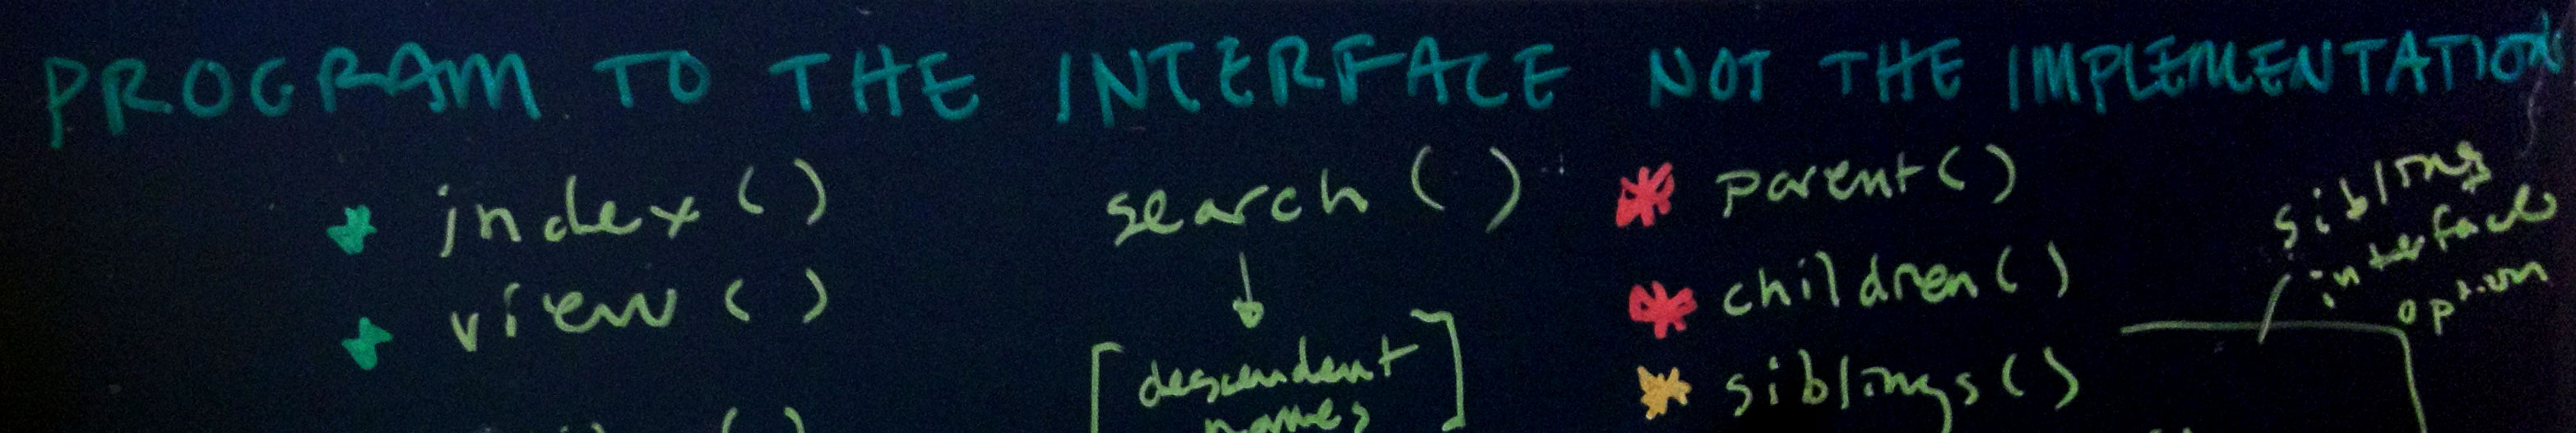 PROGRAM TO THE INTERFACE NOT THE IMPLEMENTATION
* index()
* view()
search()
[descendent
names]
* parent()
* children()
* siblings()
sibling
interface
option